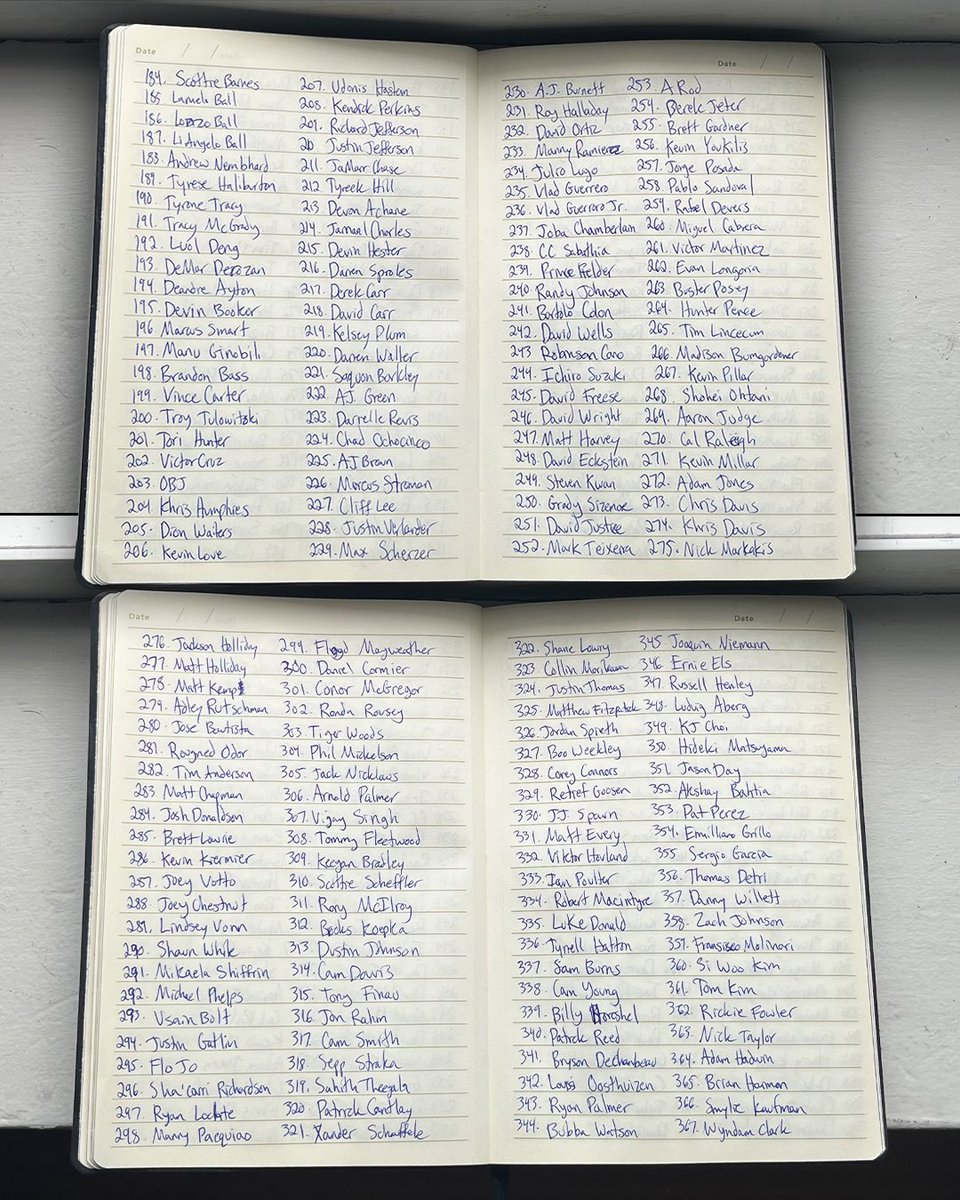 Date / /
184. Scottie Barnes
185 Lamelo Ball
186. Lonzo Ball
187. LiAngelo Ball
188. Andrew Nembhard
189. Tyrese Haliburton
190. Tyrone Tracy
191. Tracy McGrady
192. Luol Deng
193. DeMar Derozan
194. Deandre Ayton
195. Devin Booker
196. Marcus Smart
197. Manu Ginobili
198. Brandon Bass
199. Vince Carter
200. Troy Tulowitzki
201. Torii Hunter
202. Victor Cruz
203. OBJ
204. Khris Humphies
205. Dion Waiters
206. Kevin Love
207. Udonis Haslem
208. Kendrick Perkins
209. Richard Jefferson
210 Justin Jefferson
211. JaMarr Chase
212. Tyreek Hill
213. Devon Achane
214. Jamaal Charles
215. Devin Hester
216. Darren Sproles
217. Derek Carr
218. David Carr
219. Kelsey Plum
220. Darren Waller
221. Saquon Barkley
222 A.J. Green
223. Darrelle Revis
224. Chad Ochocinco
225. AJ Brown
226. Marcus Stroman
227. Cliff Lee
228. Justin Verlander
229. Max Scherzer
Date / /
230. A.J. Burnett
231. Roy Halladay
232. David Ortiz
233 Manny Ramierez
234. Julio Lugo
235. Vlad Guerrero
236. Vlad Guerrero Jr.
237. Joba Chamberlain
238. CC Sabathia
239. Prince Fielder
240. Randy Johnson
241. Bartolo Colon
242. David Wells
243 Robinson Cano
244. Ichiro Suzuki
245. David Freese
246. David Wright
247. Matt Harvey
248. David Eckstein
249. Steven Kwan
250. Grady Sizemore
251. David Justice
252. Mark Teixera
253 A Rod
254. Derek Jeter
255. Brett Gardner
256. Kevin Youkilis
257. Jorge Posada
258 Pablo Sandoval
259. Rafael Devers
260. Miguel Cabrera
261. Victor Martinez
262. Evan Longoria
263. Buster Posey
264. Hunter Pence
265. Tim Lincecum
266. Madison Bumgardener
267. Kevin Pillar
268. Shohei Ohtani
269. Aaron Judge
270. Cal Raleigh
271. Kevin Millar
272. Adam Jones
273. Chris Davis
274. Khris Davis
275. Nick Markakis
Date / /
276. Jackson Holliday
277. Matt Holliday
278. Matt Kemp
279. Adley Rutschman
280. Jose Bautista
281. Rougned Odor
282. Tim Anderson
283 Matt Chapman
284. Josh Donaldson
285. Brett Lawrie
286. Kevin Kiermier
287. Joey Votto
288. Joey Chestnut
289. Lindsey Vonn
290. Shaun White
291. Mikaela Shiffrin
292. Michael Phelps
293. Usain Bolt
294. Justin Gatlin
295. Flo Jo
296. Sha'carri Richardson
297. Ryan Lochte
298. Manny Pacquiao
299. Floyd Mayweather
300. Daniel Cormier
301. Conor McGregor
302. Ronda Rousey
303. Tiger Woods
304. Phil Mickelson
305. Jack Nicklaus
306. Arnold Palmer
307. Vijay Singh
308. Tommy Fleetwood
309. Keegan Bradley
310. Scottie Scheffler
311. Rory McIlroy
312. Brooks Koepka
313 Dustin Johnson
314. Cam Davis
315. Tony Finau
316. Jon Rahm
317. Cam Smith
318 Sepp Straka
319. Sahith Theegala
320. Patrick Cantlay
321. Xander Schauffele
Date / /
322. Shane Lowry
323. Collin Morikawa
324. Justin Thomas
325. Matthew Fitzpatrick
326. Jordan Spieth
327. Boo Weekley
328. Corey Connors
329. Retief Goosen
330. JJ Spawn
331. Matt Every
332. Viktor Hovland
333. Ian Poulter
334. Robert Macintyre
335. Luke Donald
336. Tyrell Hatton
337. Sam Burns
338. Cam Young
339. Billy Horshel
340. Patrick Reed
341. Bryson Dechambeau
342. Louis Oosthuizen
343. Ryan Palmer
344. Bubba Watson
345 Joaquin Niemann
346 Ernie Els
347. Russell Henley
348. Ludvig Aberg
349. KJ Choi
350. Hideki Matsuyama
351. Jason Day
352. Akshay Bahtia
353. Pat Perez
354. Emilliano Grillo
355 Sergio Garcia
356. Thomas Detri
357. Danny Willett
358. Zach Johnson
359. Fransisco Molinari
360. Si Woo Kim
361. Tom Kim
362. Rickie Fowler
363. Nick Taylor
364. Adam Hadwin
365. Brian Harman
366. Smylie Kaufman
367. Wyndam Clark